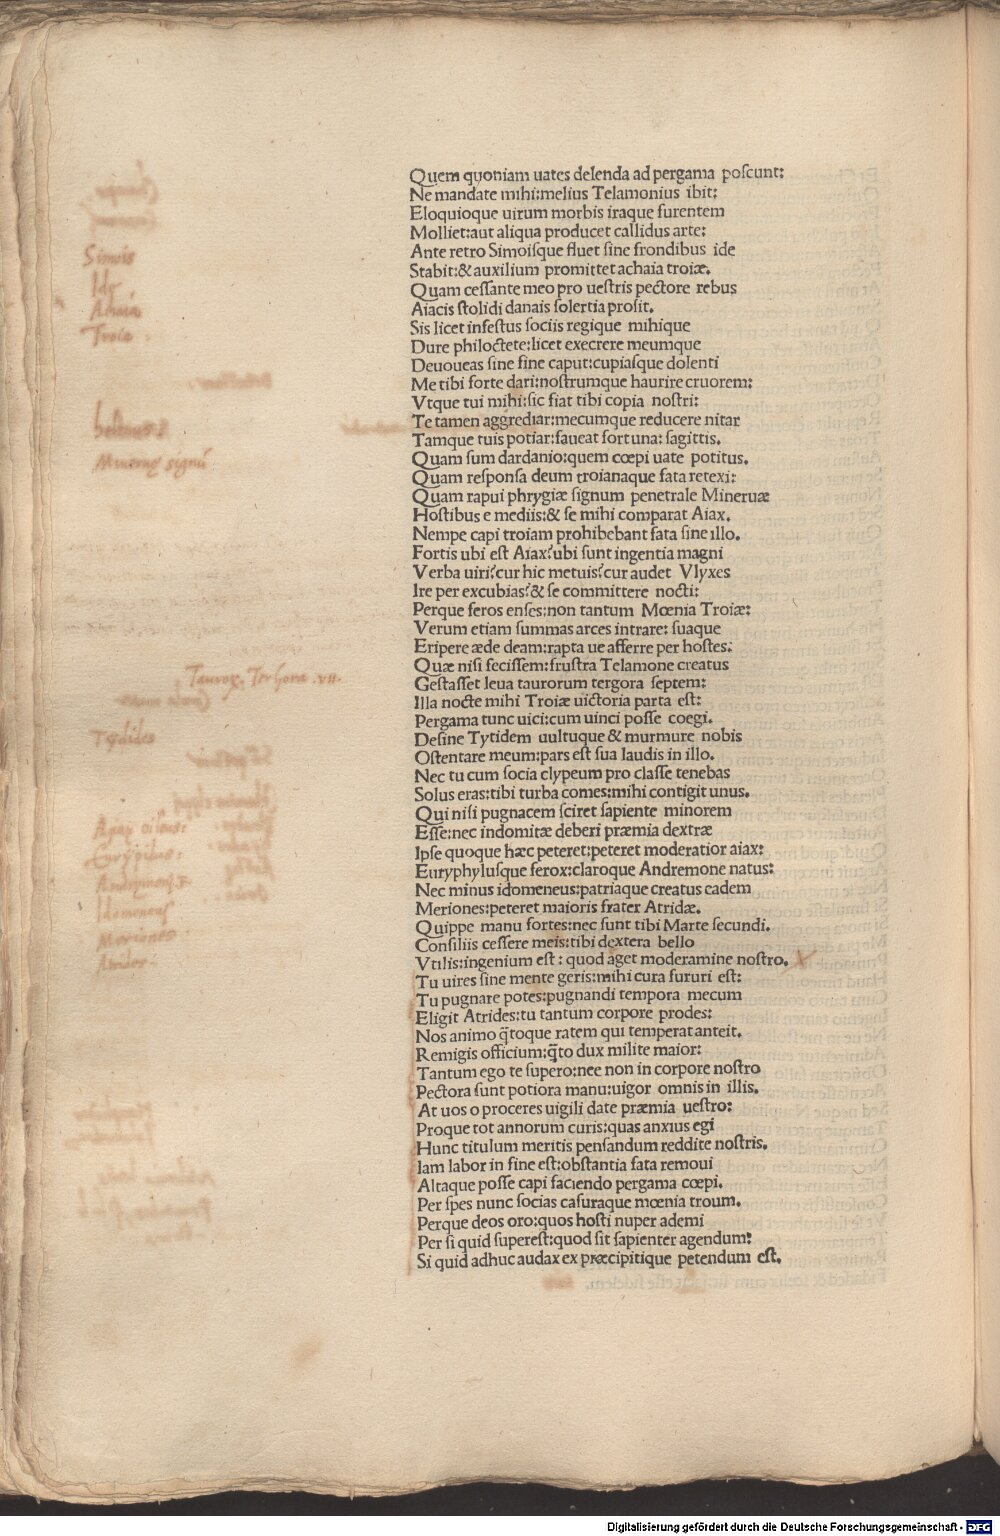 Quem quoniam uates delenda ad pergama poſcunt:
Ne mandate mihi:melius Telamonius ibit:
Eloquioque uirum morbis iraque furentem
Molliet:aut aliqua producet callidus arte:
Simois
Ante retro Simoiſque fluet ſine frondibus ide
Ide
Stabit:& auxilium promittet achaia troiæ.
Achaia
Quam ceſſante meo pro ueſtris pectore rebus
Aiacis ſtolidi danais ſolertia proſit.
Troia
Sis licet infeſtus ſociis regique mihique
Dure philoctete:licet execrere meumque
Deuoueas ſine fine caput:cupiaſque dolenti
Me tibi forte dari:noſtrumque haurire cruorem:
Vtque tui mihi:ſic fiat tibi copia noſtri:
Te tamen aggrediar:mecumque reducere nitar
Tamque tuis potiar:faueat fortuna: ſagittis.
helenus
Quam ſum dardanio:quem cœpi uate potitus.
Mineruę signū
Quam reſponſa deum troianaque fata retexi:
Quam rapui phrygiæ ſignum penetrale Mineruæ
Hoſtibus e mediis:& ſe mihi comparat Aiax.
Nempe capi troiam prohibebant fata ſine illo.
Fortis ubi eſt Aiax?ubi ſunt ingentia magni
Verba uiri?cur hic metuis?cur audet Vlyxes
Ire per excubias?& ſe committere nocti:
Perque feros enſes:non tantum Mœnia Troiæ:
Verum etiam ſummas arces intrare: ſuaque
Eripere æde deam:rapta ue afferre per hoſtes:
Quæ niſi feciſſem:fruſtra Telamone creatus
Tauroꝝ. Tergora .VII.
Geſtaſſet leua taurorum tergora ſeptem:
Illa nocte mihi Troiæ uictoria parta eſt:
Pergama tunc uici:cum uinci poſſe coegi.
Tydides
Deſine Tytidem uultuque & murmure nobis
Oſtentare meum:pars eſt ſua laudis in illo.
Nec tu cum ſocia clypeum pro claſſe tenebas
Solus eras:tibi turba comes:mihi contigit unus.
Qui niſi pugnacem ſciret ſapiente minorem
Eſſe:nec indomitæ deberi præmia dextræ
Aiax oileus:
Ipſe quoque hæc peteret:peteret moderatior aiax:
Eurypilus:
Euryphyluſque ferox:claroque Andremone natus:
Nec minus idomeneus:patriaque creatus eadem
Idomeneus
Meriones:peteret maioris frater Atridæ.
Meriones
Quippe manu fortes:nec ſunt tibi Marte ſecundi.
Atrides
Conſiliis ceſſere meis:tibi dextera bello
Vtilis:ingenium eſt: quod aget moderamine noſtro.
Tu uires ſine mente geris:mihi cura fururi eſt:
Tu pugnare potes:pugnandi tempora mecum
Eligit Atrides:tu tantum corpore prodes:
Nos animo q̄toque ratem qui temperat anteit.
Remigis officium:q̄to dux milite maior:
Tantum ego te ſupero:nec non in corpore noſtro
Pectora ſunt potiora manu:uigor omnis in illis.
At uos o proceres uigili date præmia ueſtro:
Proque tot annorum curis:quas anxius egi
Hunc titulum meritis penſandum reddite noſtris.
Iam labor in fine eſt:obſtantia fata remoui
Altaque poſſe capi faciendo pergama cœpi.
Per ſpes nunc ſocias caſuraque mœnia troum.
Perque deos oro:quos hoſti nuper ademi
Per ſi quid ſupereſt:quod ſit ſapienter agendum:
Si quid adhuc audax ex præcipitique petendum eſt.
Digitalisierung gefördert durch die Deutsche Forschungsgemeinschaft - DFG